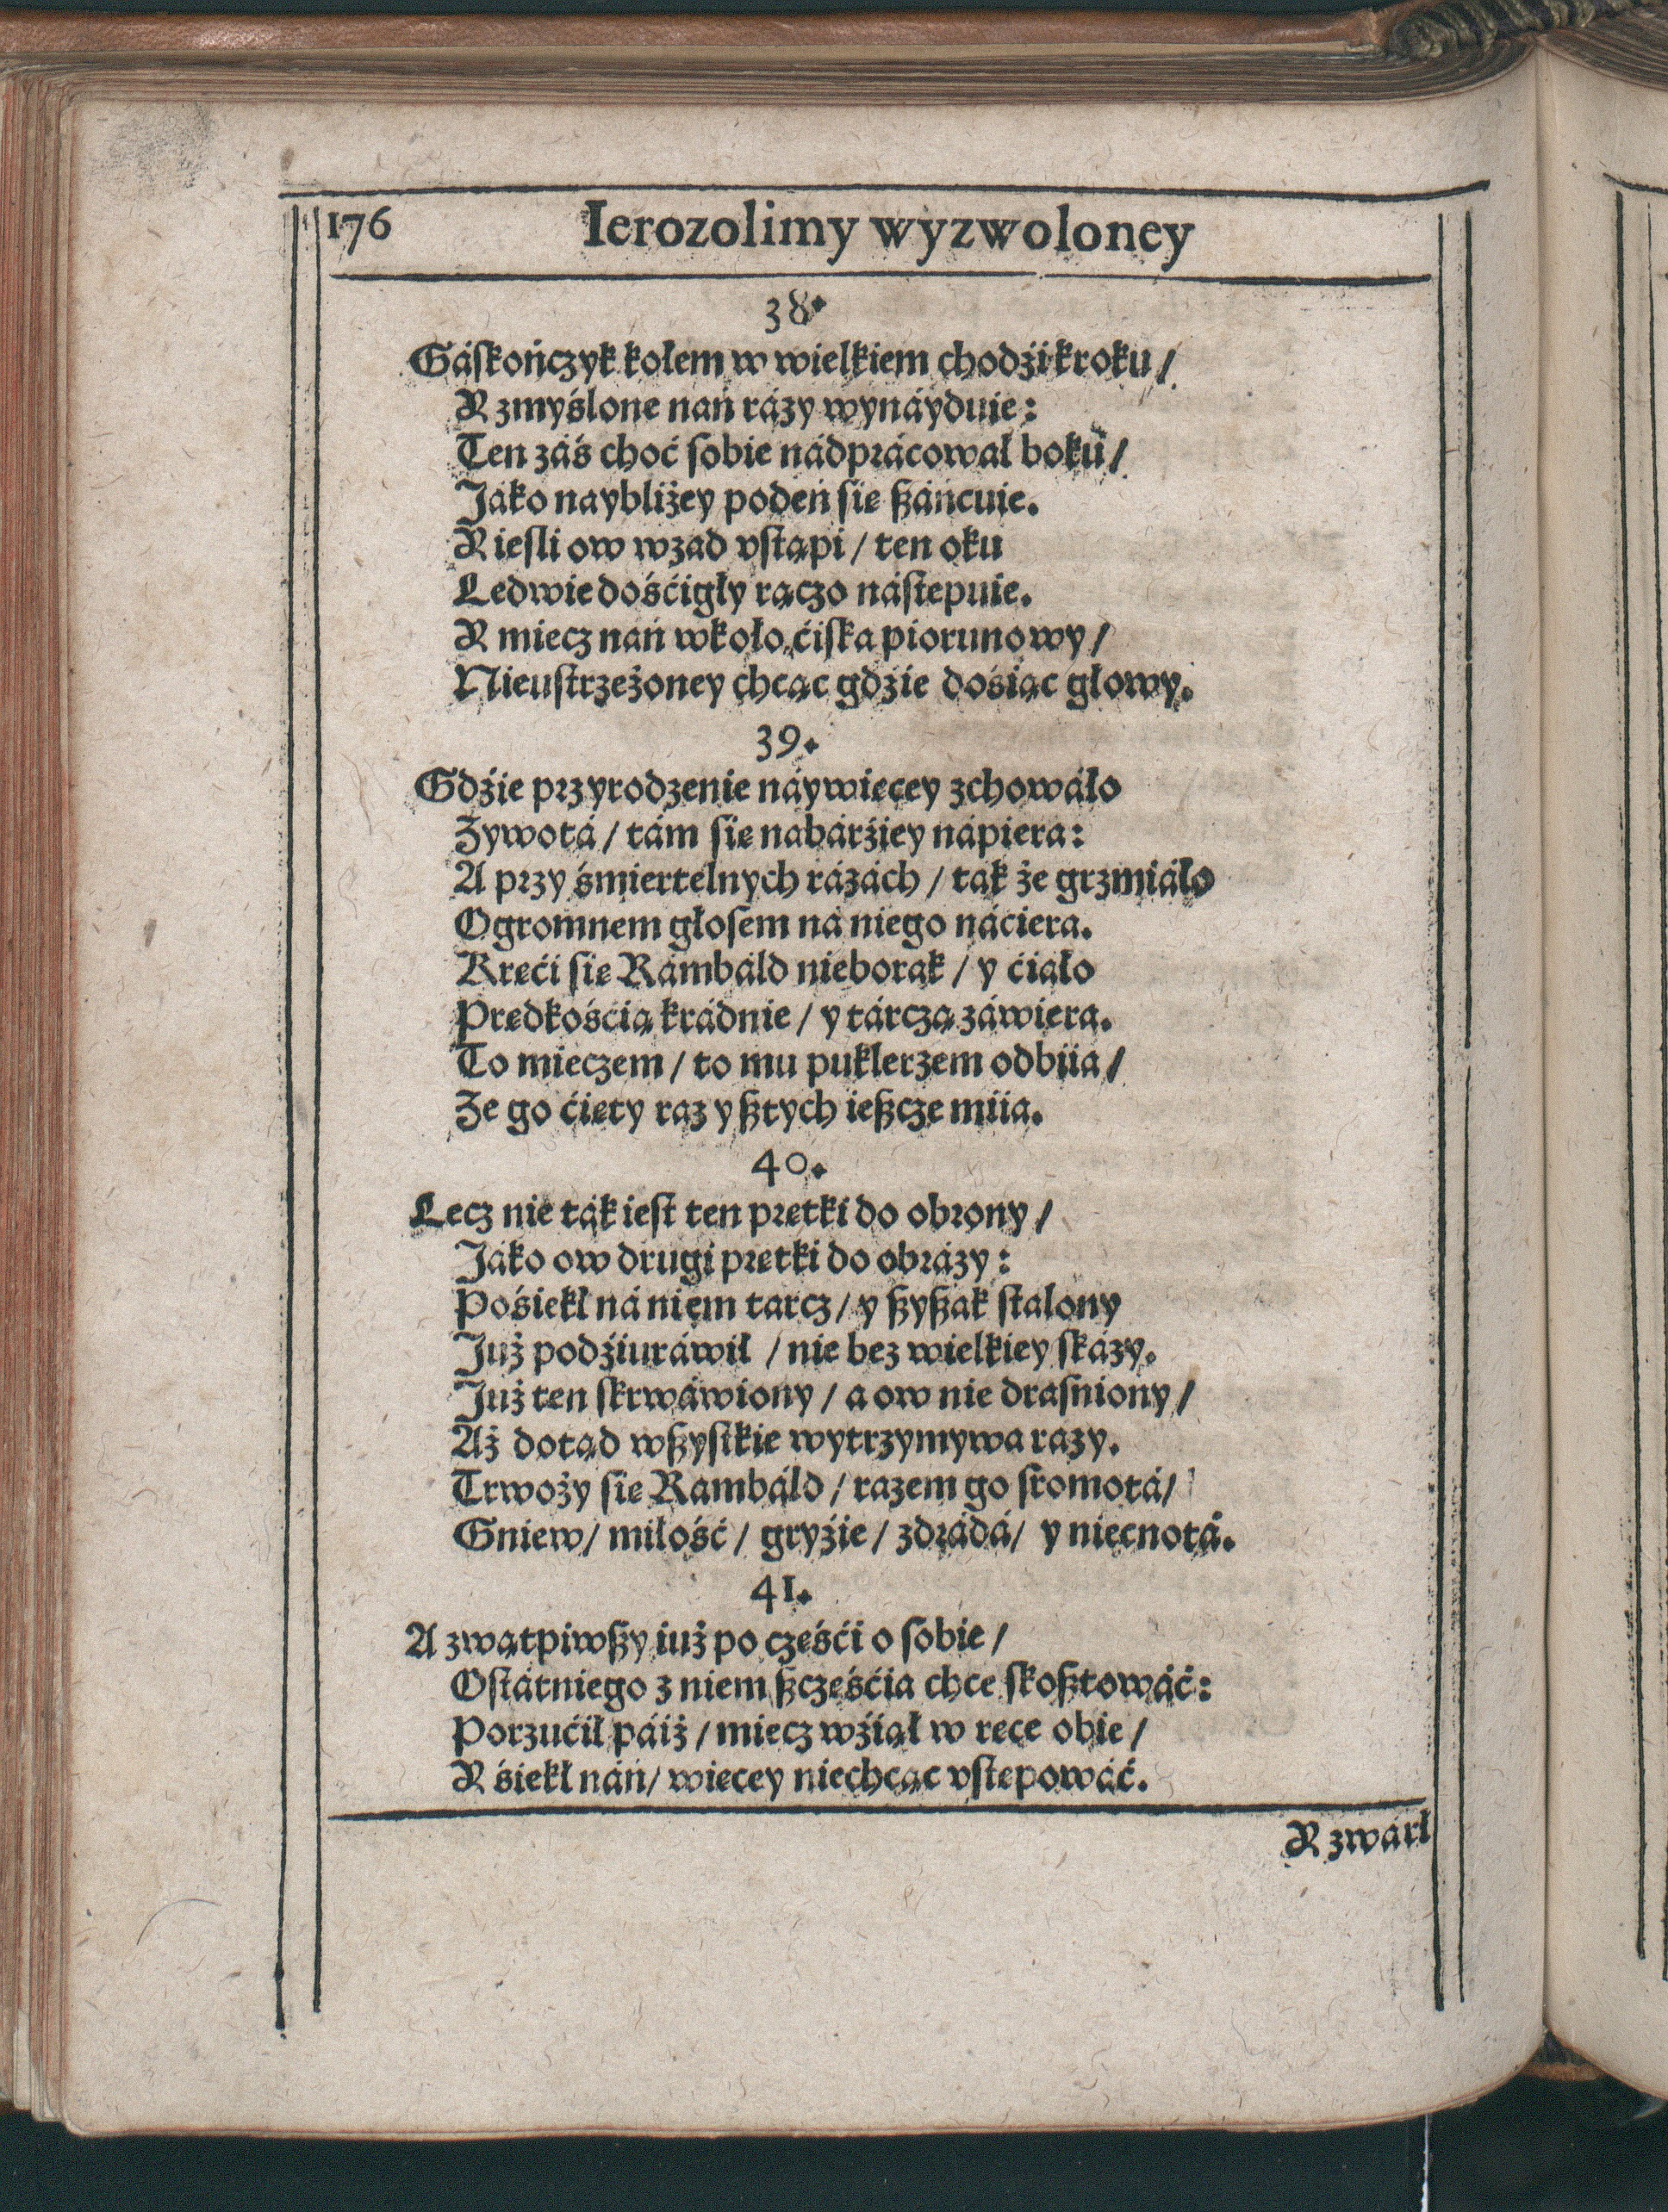 176 Ierozolimy wyzwoloney
38.
Gáſkończyk kołem w wielkiem chodźi kroku /
Y zmyślone nań rázy wynáyduie:
Ten záś choć ſobie nádprácował boku /
Jáko naybliżey podeń ſie ßáńcuie.
Y ieſli ow wzad vſtąpi / ten oku
Ledwie dośćigły rączo náſtępuie.
Y miecz nań wkoło ćiſka piorunowy /
Nieuſtrzeżoney chcąc gdźie dośiąc głowy.
39.
Gdźie przyrodzenie naywięcey zchowáło
Zywotá / tám ſie nabárźiey nápiera:
A przy śmiertelnych rázách / ták że grzmiáło
Ogromnem głoſem ná niego náciera.
Kręći ſie Rámbáld nieborak / y ćiáło
Prędkośćią krádnie / y tárczą záwiera.
To mieczem / to mu puklerzem odbiia /
Ze go ćięty raz y ßtych ießcze miia.
40.
Lecz nie ták ieſt ten prętki do obrony /
Jáko ow drugi prętki do obrázy:
Pośiekł ná niem tarcz / y ßyßak ſtalony
Już podźiuráwił / nie bez wielkiey ſkázy.
Już ten ſkrwáwiony / a ow nie draſniony /
Aż dotąd wßyſtkie wytrzymywa razy.
Trwoży ſie Rambáld / razem go ſromotá /
Gniew / miłość / gryźie / zdrádá / y niecnotá.
41.
A zwątpiwßy iuż po częśći o ſobie /
Oſtátniego z niem ßczęśćia chce ſkoßtowáć:
Porzućił páiż / miecz wźiął w ręce obie /
Y śiekł nań / więcey niechcąc vſtępowáć.
Y zwarł